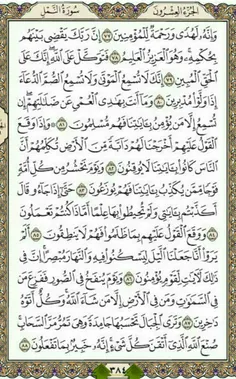 الجزء العشرون سورة النمل
وَإِنَّهُۥ لَهُدًى وَرَحْمَةٌ لِّلْمُؤْمِنِينَ ٧٧ إِنَّ رَبَّكَ يَقْضِى بَيْنَهُم
بِحُكْمِهِۦ وَهُوَ ٱلْعَزِيزُ ٱلْعَلِيمُ ٧٨ فَتَوَكَّلْ عَلَى ٱللَّهِ إِنَّكَ عَلَى
ٱلْحَقِّ ٱلْمُبِينِ ٧٩ إِنَّكَ لَا تُسْمِعُ ٱلْمَوْتَىٰ وَلَا تُسْمِعُ ٱلصُّمَّ ٱلدُّعَآءَ
إِذَا وَلَّوْا۟ مُدْبِرِينَ ٨٠ وَمَآ أَنتَ بِهَٰدِى ٱلْعُمْىِ عَن ضَلَٰلَتِهِمْ إِن
تُسْمِعُ إِلَّا مَن يُؤْمِنُ بِـَٔايَٰتِنَا فَهُم مُّسْلِمُونَ ٨١ وَإِذَا وَقَعَ
ٱلْقَوْلُ عَلَيْهِمْ أَخْرَجْنَا لَهُمْ دَآبَّةً مِّنَ ٱلْأَرْضِ تُكَلِّمُهُمْ أَنَّ
ٱلنَّاسَ كَانُوا۟ بِـَٔايَٰتِنَا لَا يُوقِنُونَ ٨٢ وَيَوْمَ نَحْشُرُ مِن كُلِّ أُمَّةٍ
فَوْجًا مِّمَّن يُكَذِّبُ بِـَٔايَٰتِنَا فَهُمْ يُوزَعُونَ ٨٣ حَتَّىٰٓ إِذَا جَآءُو قَالَ
أَكَذَّبْتُم بِـَٔايَٰتِى وَلَمْ تُحِيطُوا۟ بِهَا عِلْمًا أَمَّاذَا كُنتُمْ تَعْمَلُونَ
٨٤ وَوَقَعَ ٱلْقَوْلُ عَلَيْهِم بِمَا ظَلَمُوا۟ فَهُمْ لَا يَنطِقُونَ ٨٥ أَلَمْ
يَرَوْا۟ أَنَّا جَعَلْنَا ٱلَّيْلَ لِيَسْكُنُوا۟ فِيهِ وَٱلنَّهَارَ مُبْصِرًا إِنَّ فِى
ذَٰلِكَ لَـَٔايَٰتٍ لِّقَوْمٍ يُؤْمِنُونَ ٨٦ وَيَوْمَ يُنفَخُ فِى ٱلصُّورِ فَفَزِعَ مَن
فِى ٱلسَّمَٰوَٰتِ وَمَن فِى ٱلْأَرْضِ إِلَّا مَن شَآءَ ٱللَّهُ وَكُلٌّ أَتَوْهُ
دَٰخِرِينَ ٨٧ وَتَرَى ٱلْجِبَالَ تَحْسَبُهَا جَامِدَةً وَهِىَ تَمُرُّ مَرَّ ٱلسَّحَابِ
صُنْعَ ٱللَّهِ ٱلَّذِىٓ أَتْقَنَ كُلَّ شَىْءٍ إِنَّهُۥ خَبِيرٌۢ بِمَا تَفْعَلُونَ ٨٨
٣٨٤